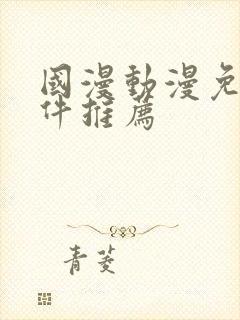 國漫動漫免
件推薦
青菱